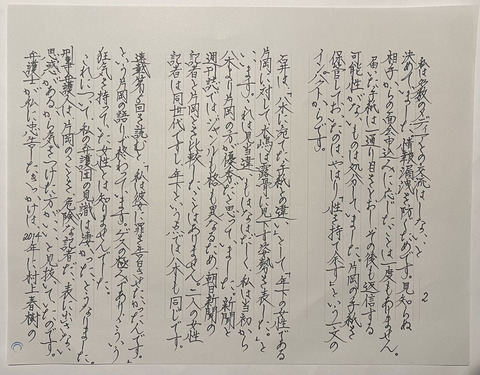 2
私は複数のメディアとの交流はしないと
決めていました。情報漏洩を防ぐためです。見知らぬ
相手からの面会申込へ応じたことは一度もありません。
届いた手紙は一通り目をとおし、その後も返信する
可能性がないものは処分してました。片岡の手紙を
保管しておいたのはやはり「性を持て余す」という一文の
インパクトからです。
八木に宛てた手紙との違いとして、「年下の女性である
片岡に対して木嶋は露骨に見下す姿勢を表した。」と
います。これは見当違いもはなはだしく、私は当初から
八木より片岡の方が優秀だと思っていました。新聞と
週刊誌ではジャンルも格も異なるため朝日新聞の
記者と片岡さんを比較したことはありません。二人の女性
記者は同世代ですし、年下という点では八木も同じです。
連載第2回を読むと「私は彼女に罪を告白させたかったんです。」
という片岡の語りで終わっています。ゲスの極みであり、こういう
狂気を持っていた女性とは知りませんでした。
これについて、私の弁護団の見識は凄かった、となりました。
刑事弁護人は片岡のことを、危険な記者だ、表に出さない
思惑があるから気をつけた方がいい、と見抜いていたのです。
弁護士が私に忠告したきっかけは2014年に村上春樹の